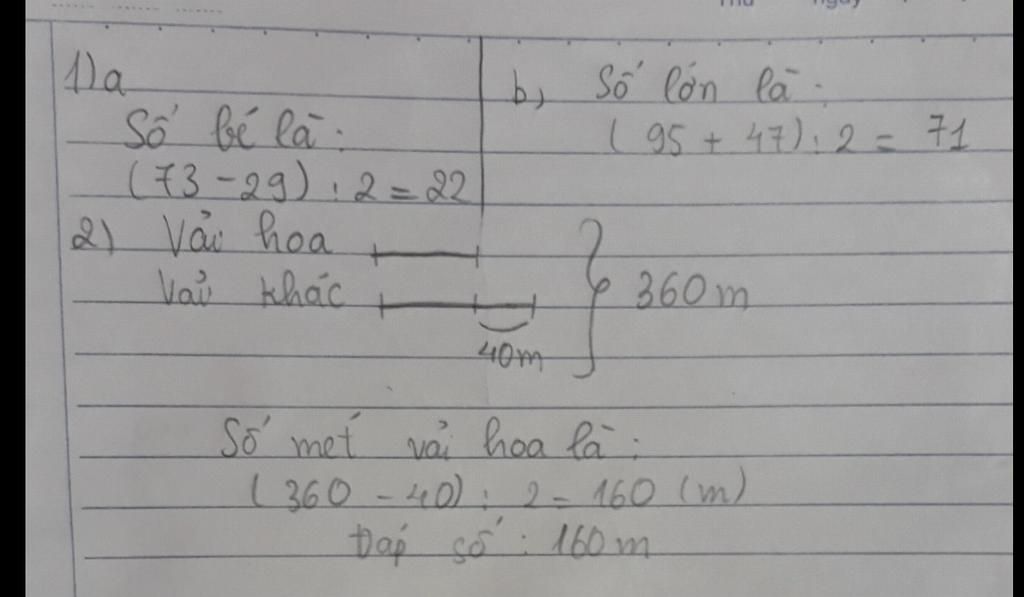 Thứ ngày
1) a
Số bé là:
(73 - 29) : 2 = 22
b) Số lớn là:
(95 + 47) : 2 = 71
2) Vải hoa
Vải khác
360 m
40m
Số mét vải hoa là:
(360 - 40) : 2 = 160 (m)
Đáp số : 160 m